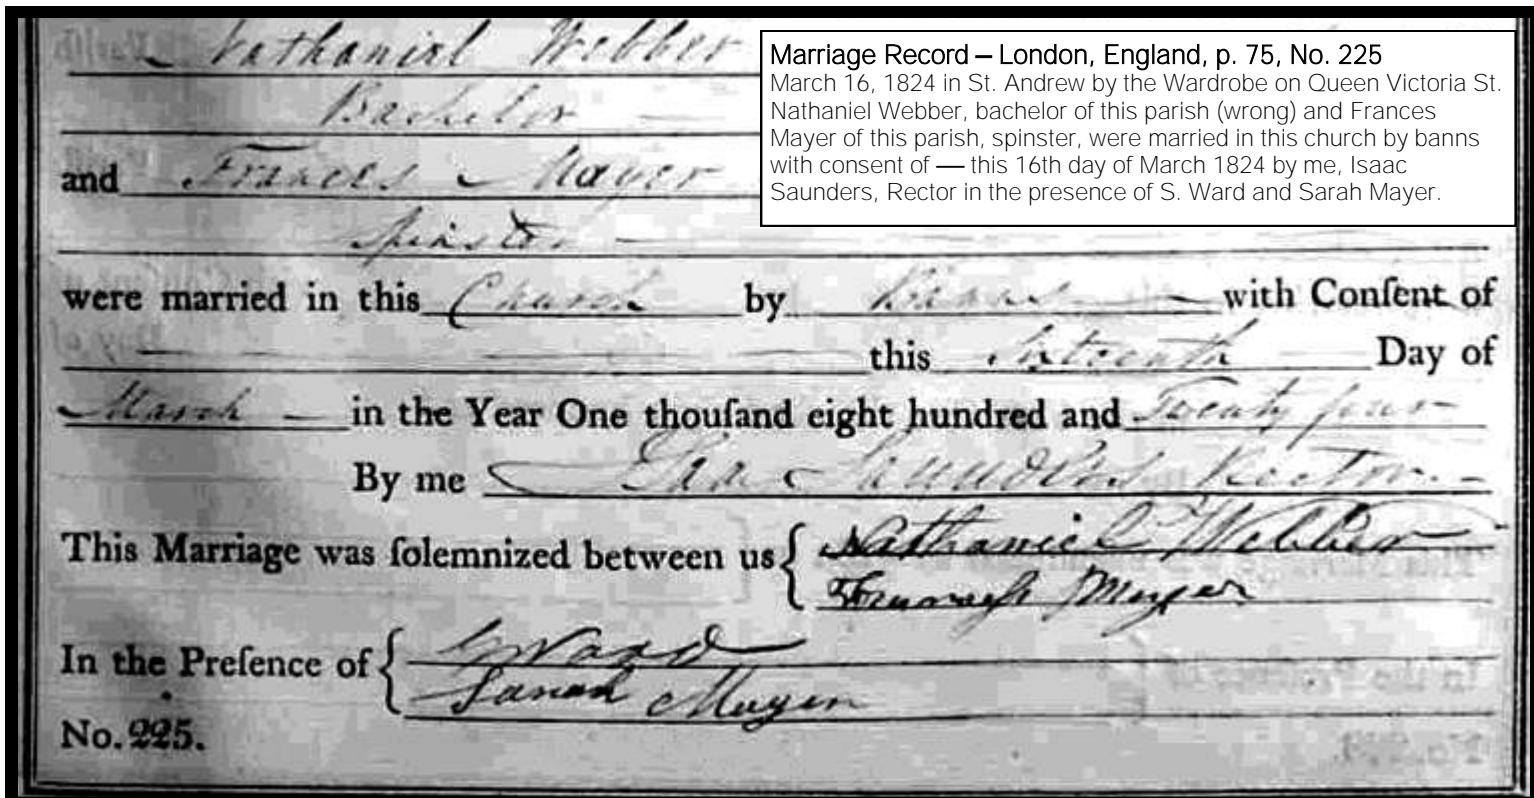 Nathaniel Webber
Bachelor
and Frances Mayer
Spinster
Marriage Record – London, England, p. 75, No. 225
March 16, 1824 in St. Andrew by the Wardrobe on Queen Victoria St.
Nathaniel Webber, bachelor of this parish (wrong) and Frances
Mayer of this parish, spinster, were married in this church by banns
with consent of — this 16th day of March 1824 by me, Isaac
Saunders, Rector in the presence of S. Ward and Sarah Mayer.
were married in this Church by Banns with Conſent of
this Sixteenth Day of
March in the Year One thouſand eight hundred and Twenty four
By me Isaac Saunders Rector
This Marriage was ſolemnized between us { Nathaniel Webber
Mayer
In the Preſence of { Ward
Sarah Mayer
No. 225.